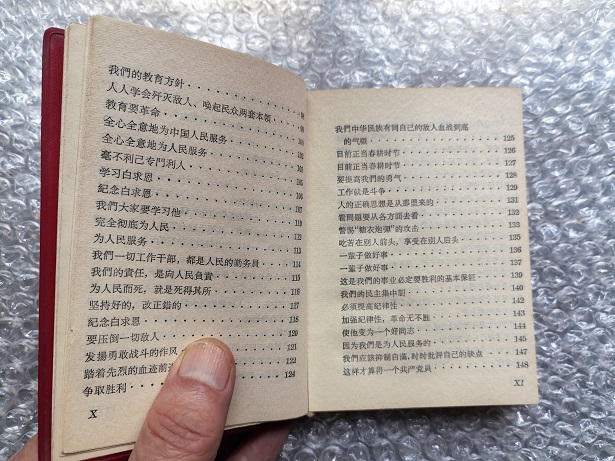 我們的教育方針
人人学会歼灭敌人、唤起民众两套本領 98
教育要革命
全心全意地为中国人民服务 102
全心全意地为人民服务
毫不利己专門利人 105
学习白求恩
紀念白求恩 108
我們大家要学习他 109
完全彻底为人民 111
为人民服务 113
我們一切工作干部，都是人民的勤务員 114
我們的責任，是向人民負責 115
为人民而死，就是死得其所 116
坚持好的，改正錯的 117
紀念白求恩 118
要压倒一切敌人 120
发揚勇敢战斗的作风 121
踏着先烈的血迹前 122
争取胜利 124
X
我們中华民族有同自己的敌人血战到底
的气慨 125
目前正当春耕时节 126
目前正当春耕时节 127
要提高我們的勇气 128
工作就是斗争 129
人的正确思想是从那里来的 131
看問題要从各方面去看 132
警惕“糖衣炮弹”的攻击 133
吃苦在別人前头，享受在別人后头 135
一輩子做好事 136
一輩子做好事 137
这是我們的事业必定要胜利的基本保証 139
我們的民主集中制 140
必須提高紀律性 142
加强紀律性，革命无不胜 143
使他变为一个好同志 144
因为我們是为人民服务的 145
我們应該抑制自满，时时批評自己的缺点 147
这样才算得一个共产党員 148
XI